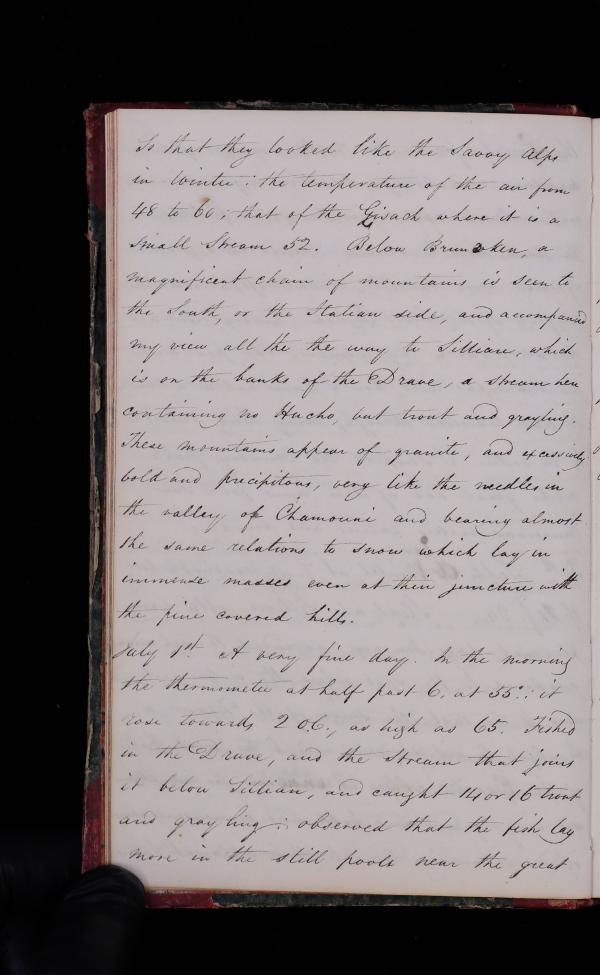 So that they looked like the Savoy Alps
in winter: the temperature of the air from
48 to 60; that of the Eisach where it is a
small stream 52. Below Brunecken, a
magnificent chain of mountains is seen to
the South, or the Italian side, and accompanied
my view all the the way to Sillian, which
is on the banks of the Drave, a stream here
containing no Hucho, but trout and grayling.
These mountains appear of granite, and excessively
bold and precipitous, very like the needles in
the valley of Chamouni and bearing almost
the same relations to snow which lay in
immense masses even at their juncture with
the pine covered hills.
July 1st. A very fine day. In the morning
the thermometer at half past 6, at 55°: it
rose towards 2 o.c., as high as 65. Fished
in the Drave, and the stream that joins
it below Sillian, and caught 14 or 16 trout
and grayling; observed that the fish lay
more in the still pools near the great